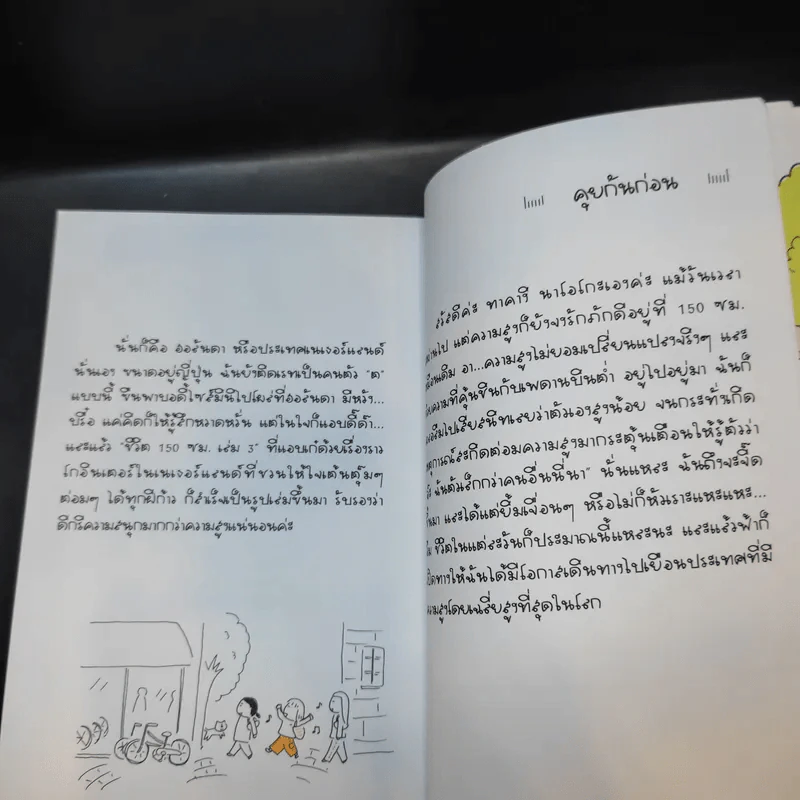 นั่นก็คือ ฮอลันดา หรือประเทศเนเธอร์แลนด์
นั่นเอง ขนาดอยู่ญี่ปุ่น ฉันยังติดเรทเป็นคนตัว "ต"
แบบนี้ ขืนพาบอดี้ไซส์มินิไปโผล่ที่ฮอลันดา มีหวัง...
บรื๋อ แค่คิดก็ให้รู้สึกหวาดหวั่น แต่ในใจก็แอบดี๊ด๊า...
และแล้ว "ชีวิต 150 ซม. เล่ม 3" ที่แอบเก๋ด้วยเรื่องราว
โกอินเตอร์ในเนเธอร์แลนด์ที่ชวนให้ใจเต้นตุ๊มๆ
ต่อมๆ ได้ทุกฝีก้าว ก็สำเร็จเป็นรูปเล่มขึ้นมา รับรองว่า
ดีกรีความสนุกมากกว่าความสูงแน่นอนค่ะ
คุยกันก่อน
สวัสดีค่ะ ทาคางิ นาโอโกะเองค่ะ แม้วันเวลา
ผ่านไป แต่ความสูงก็ยังจงรักภักดีอยู่ที่ 150 ซม.
เหมือนเดิม อา...ความสูงไม่ยอมเปลี่ยนแปลงจริงๆ และ
ความที่คุ้นชินกับเพดานบินต่ำ อยู่ไปอยู่มา ฉันก็
ลืมไปเสียสนิทเลยว่าตัวเองสูงน้อย จนกระทั่งเกิด
สะกิดต่อมความสูงมากระตุ้นเตือนให้รู้ตัวว่า
ฉันตัวเล็กกว่าคนอื่นนี่นา" นั่นแหละ ฉันถึงจะจี๊ด
ขึ้นมา และได้แต่ยิ้มเจื่อนๆ หรือไม่ก็หัวเราะแหะแหะ...
ชีวิตในแต่ละวันก็ประมาณนี้แหละนะ และแล้วฟ้าก็
เปิดทางให้ฉันได้มีโอกาสเดินทางไปเยือนประเทศที่มี
ความสูงโดยเฉลี่ยสูงที่สุดในโลก